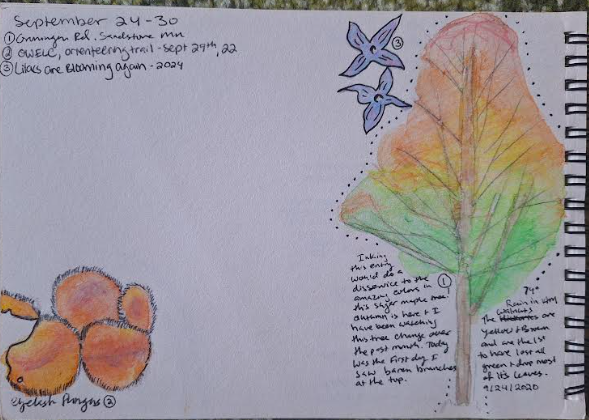 September 24-30
① Groningen Rd. Sandstone MN
② OWELC, orienteering trail - Sept 29th, 22
③ Lilacs are Blooming again - 2024
③
Inking
this entry
would do a
disservice to the
amazing colors in ①
this sugar maple tree!
Autumn is here & I
have been watching
this tree change over
the past month. Today
was the first day I
saw baren branches
at the top.
74°
Rain in
walnuts
The are
yellow & Brown
and are the 1st
to have lost all
green & drop most
of its leaves.
9/24/2020
Eyelash Fungus ②